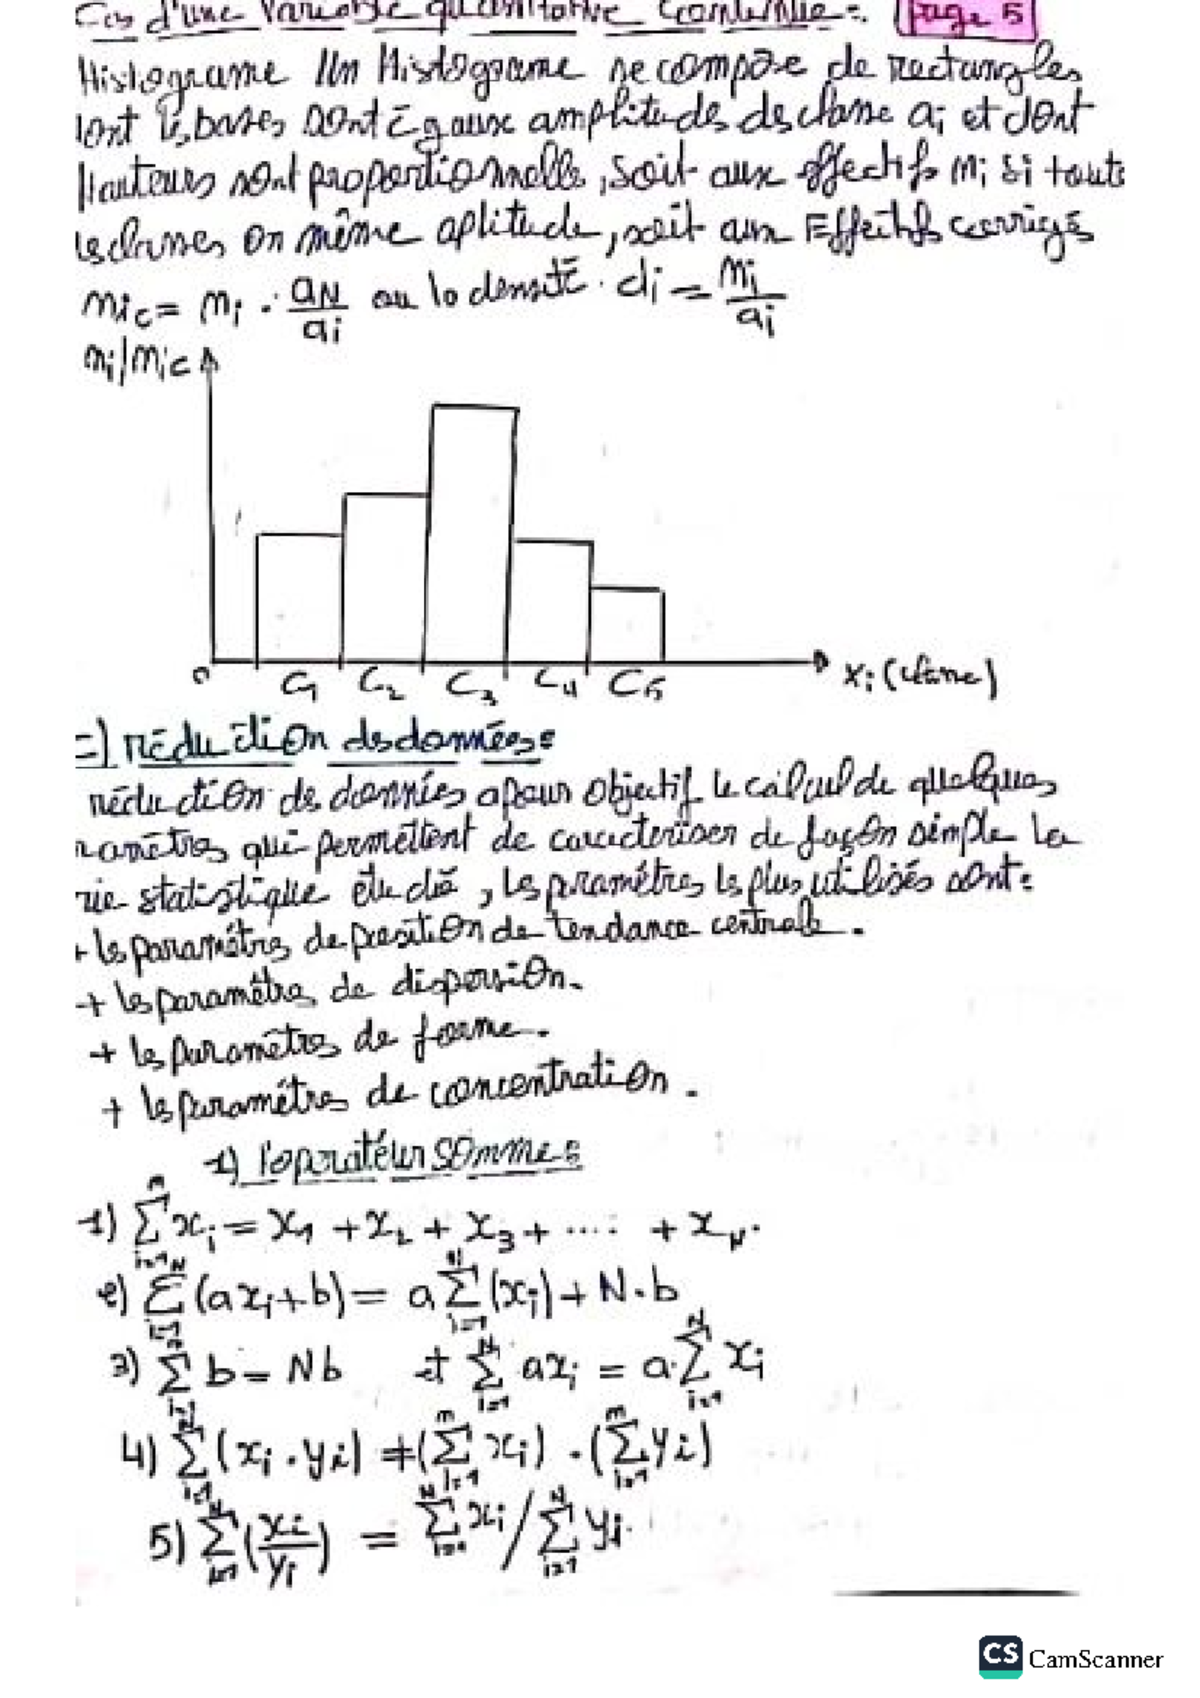 Cas d'une Variable quantitative Continue :. page 5
Histograme Un Histograme se compose de rectangles
dont les bases sont égaux amplitudes des classe ai et dont
Hauteurs sont proportionnelle, soit aux effectifs ni si toute
les classes on même aplitude, soit aux Effectifs corrigés
nic = ni · aN/ai ou la densité · di = ni/ai
ni/nic
0 C1 C2 C3 C4 C5 xi (classe)
c) réduction des données :
réduction de données a pour objectif le calcul de quelques
ramètres qui permettent de caractériser de façon simple la
rie statistique étudié, les paramètres les plus utilisés sont :
+ les paramètres de position de tendance centrale.
+ les paramètres de dispersion.
+ les paramètres de forme.
+ les paramètres de concentration.
1) l'opérateur somme :
1) Σ^n_{i=1} xi = x1 + x2 + x3 + .... + xN.
2) Σ^N_{i=1} (axi + b) = a Σ^n_{i=1} (xi) + N·b
3) Σ_{i=1} b = Nb et Σ^N_{i=1} axi = a·Σ^N_{i=1} xi
4) Σ_{i=1} (xi · yi) ≠ (Σ^n_{i=1} xi) · (Σ^n_{i=1} yi)
5) Σ^N_{i=1} (xi/yi) = Σ^N_{i=1} xi / Σ^N_{i=1} yi.
CS CamScanner